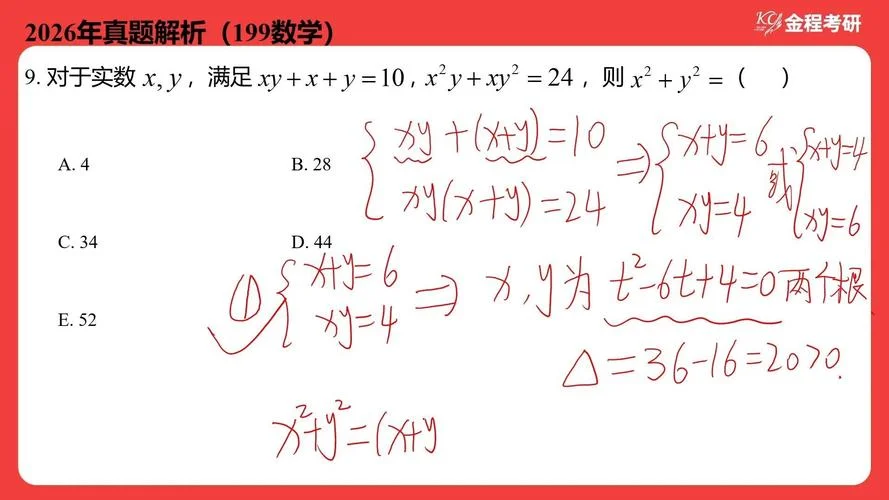 2026年真题解析（199数学）
KC 金程考研
9. 对于实数 x, y，满足 xy + x + y = 10, x²y + xy² = 24，则 x² + y² =（ ）
A. 4
B. 28
C. 34
D. 44
E. 52
{ xy + (x+y) = 10
xy(x+y) = 24
⇒ { x+y = 6
xy = 4
或 { x+y = 4
xy = 6
① { x+y = 6
xy = 4
⇒ x, y 为 t² - 6t + 4 = 0 两个根
△ = 36 - 16 = 20 > 0.
x² + y² = (x+y